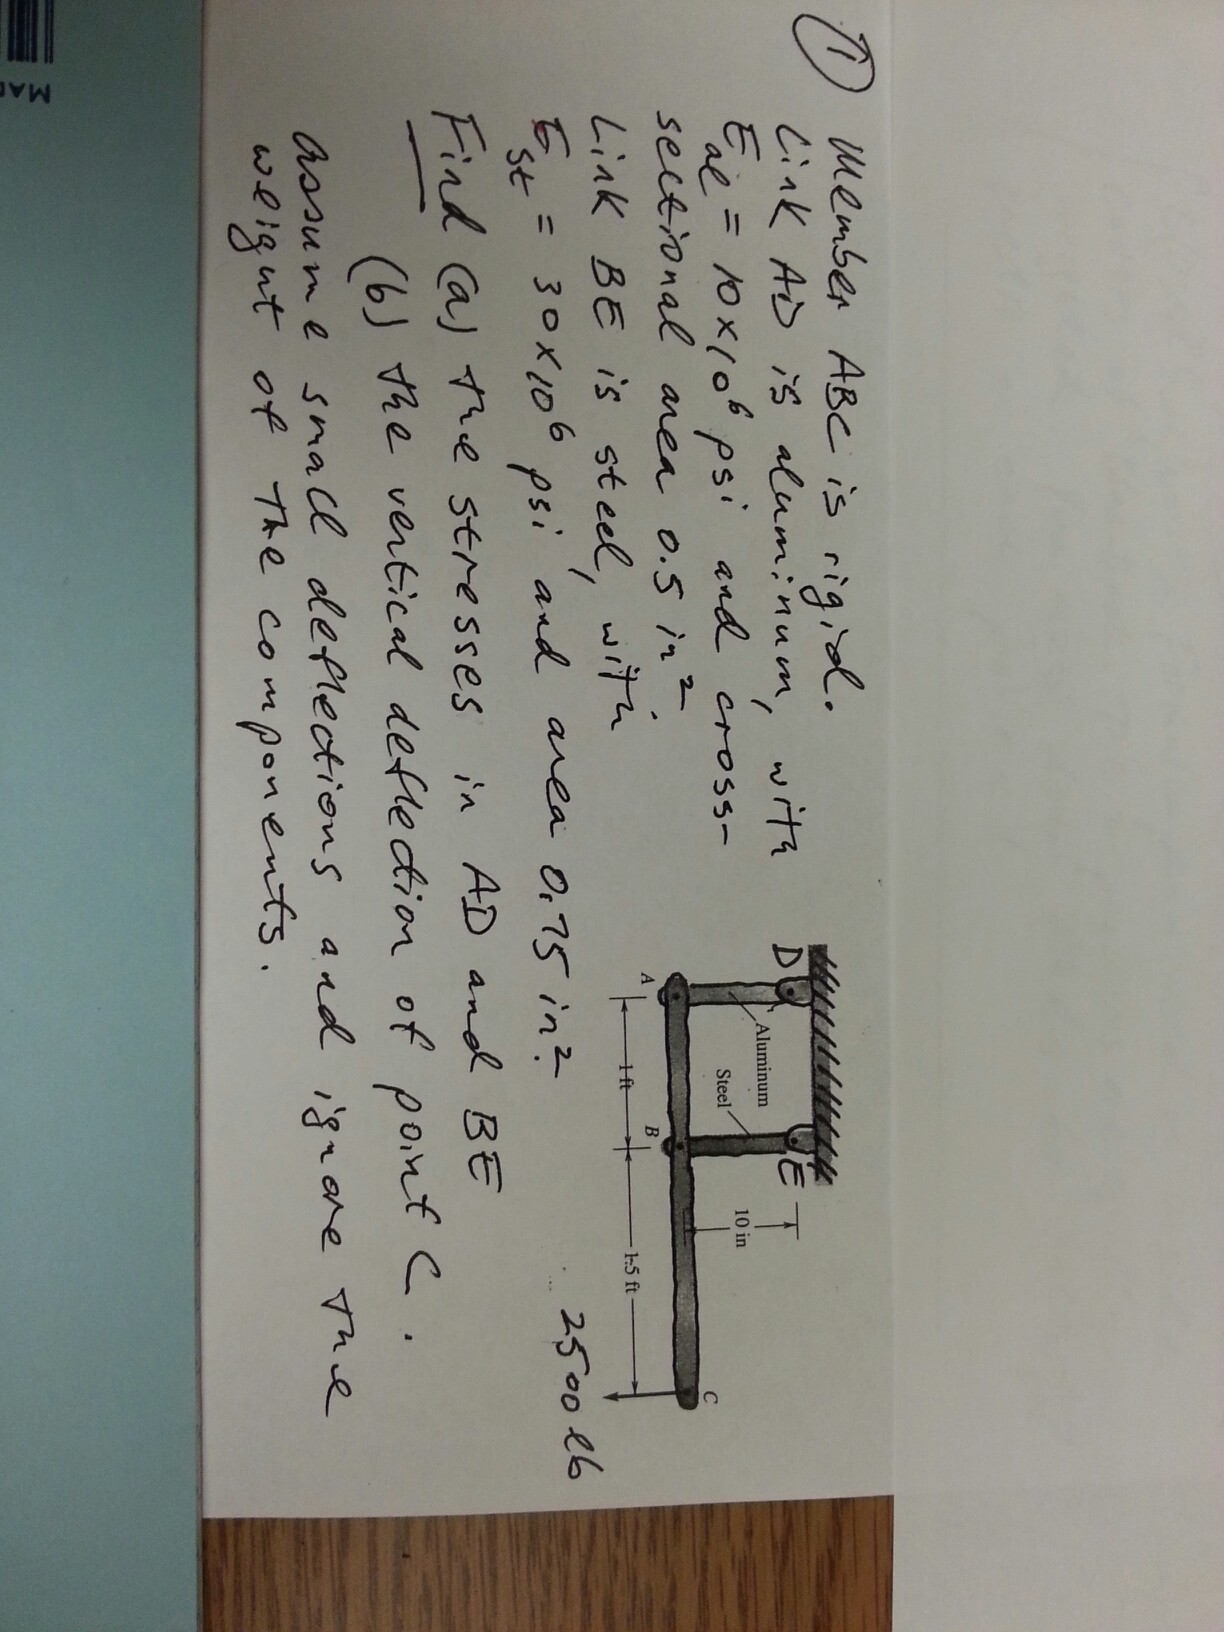 1
Member ABC is rigid.
Link AD is aluminum, with
E al = 10×10⁶ psi and cross-
sectional area 0.5 in²
Link BE is steel, with
E st = 30×10⁶ psi and area 0.75 in².
Find (a) the stresses in AD and BE
(b) the vertical deflection of point C.
Assume small deflections and ignore the
weight of the components.
D
E
Aluminum
Steel
10 in
A
B
C
1 ft
1.5 ft
2500 lb